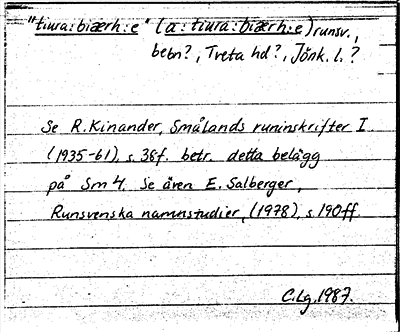 "tiura:biærh:e" (a:tiura:biærh:e) runsv.,
bebn?, Treta hd?, Jönk. l.?
Se R. Kinander, Smålands runinskrifter I
(1935-61), s. 38f. betr. detta belägg
på Sm 4. Se även E. Salberger,
Runsvenska namnstudier, (1978), s. 190ff.
C.Lg. 1987.